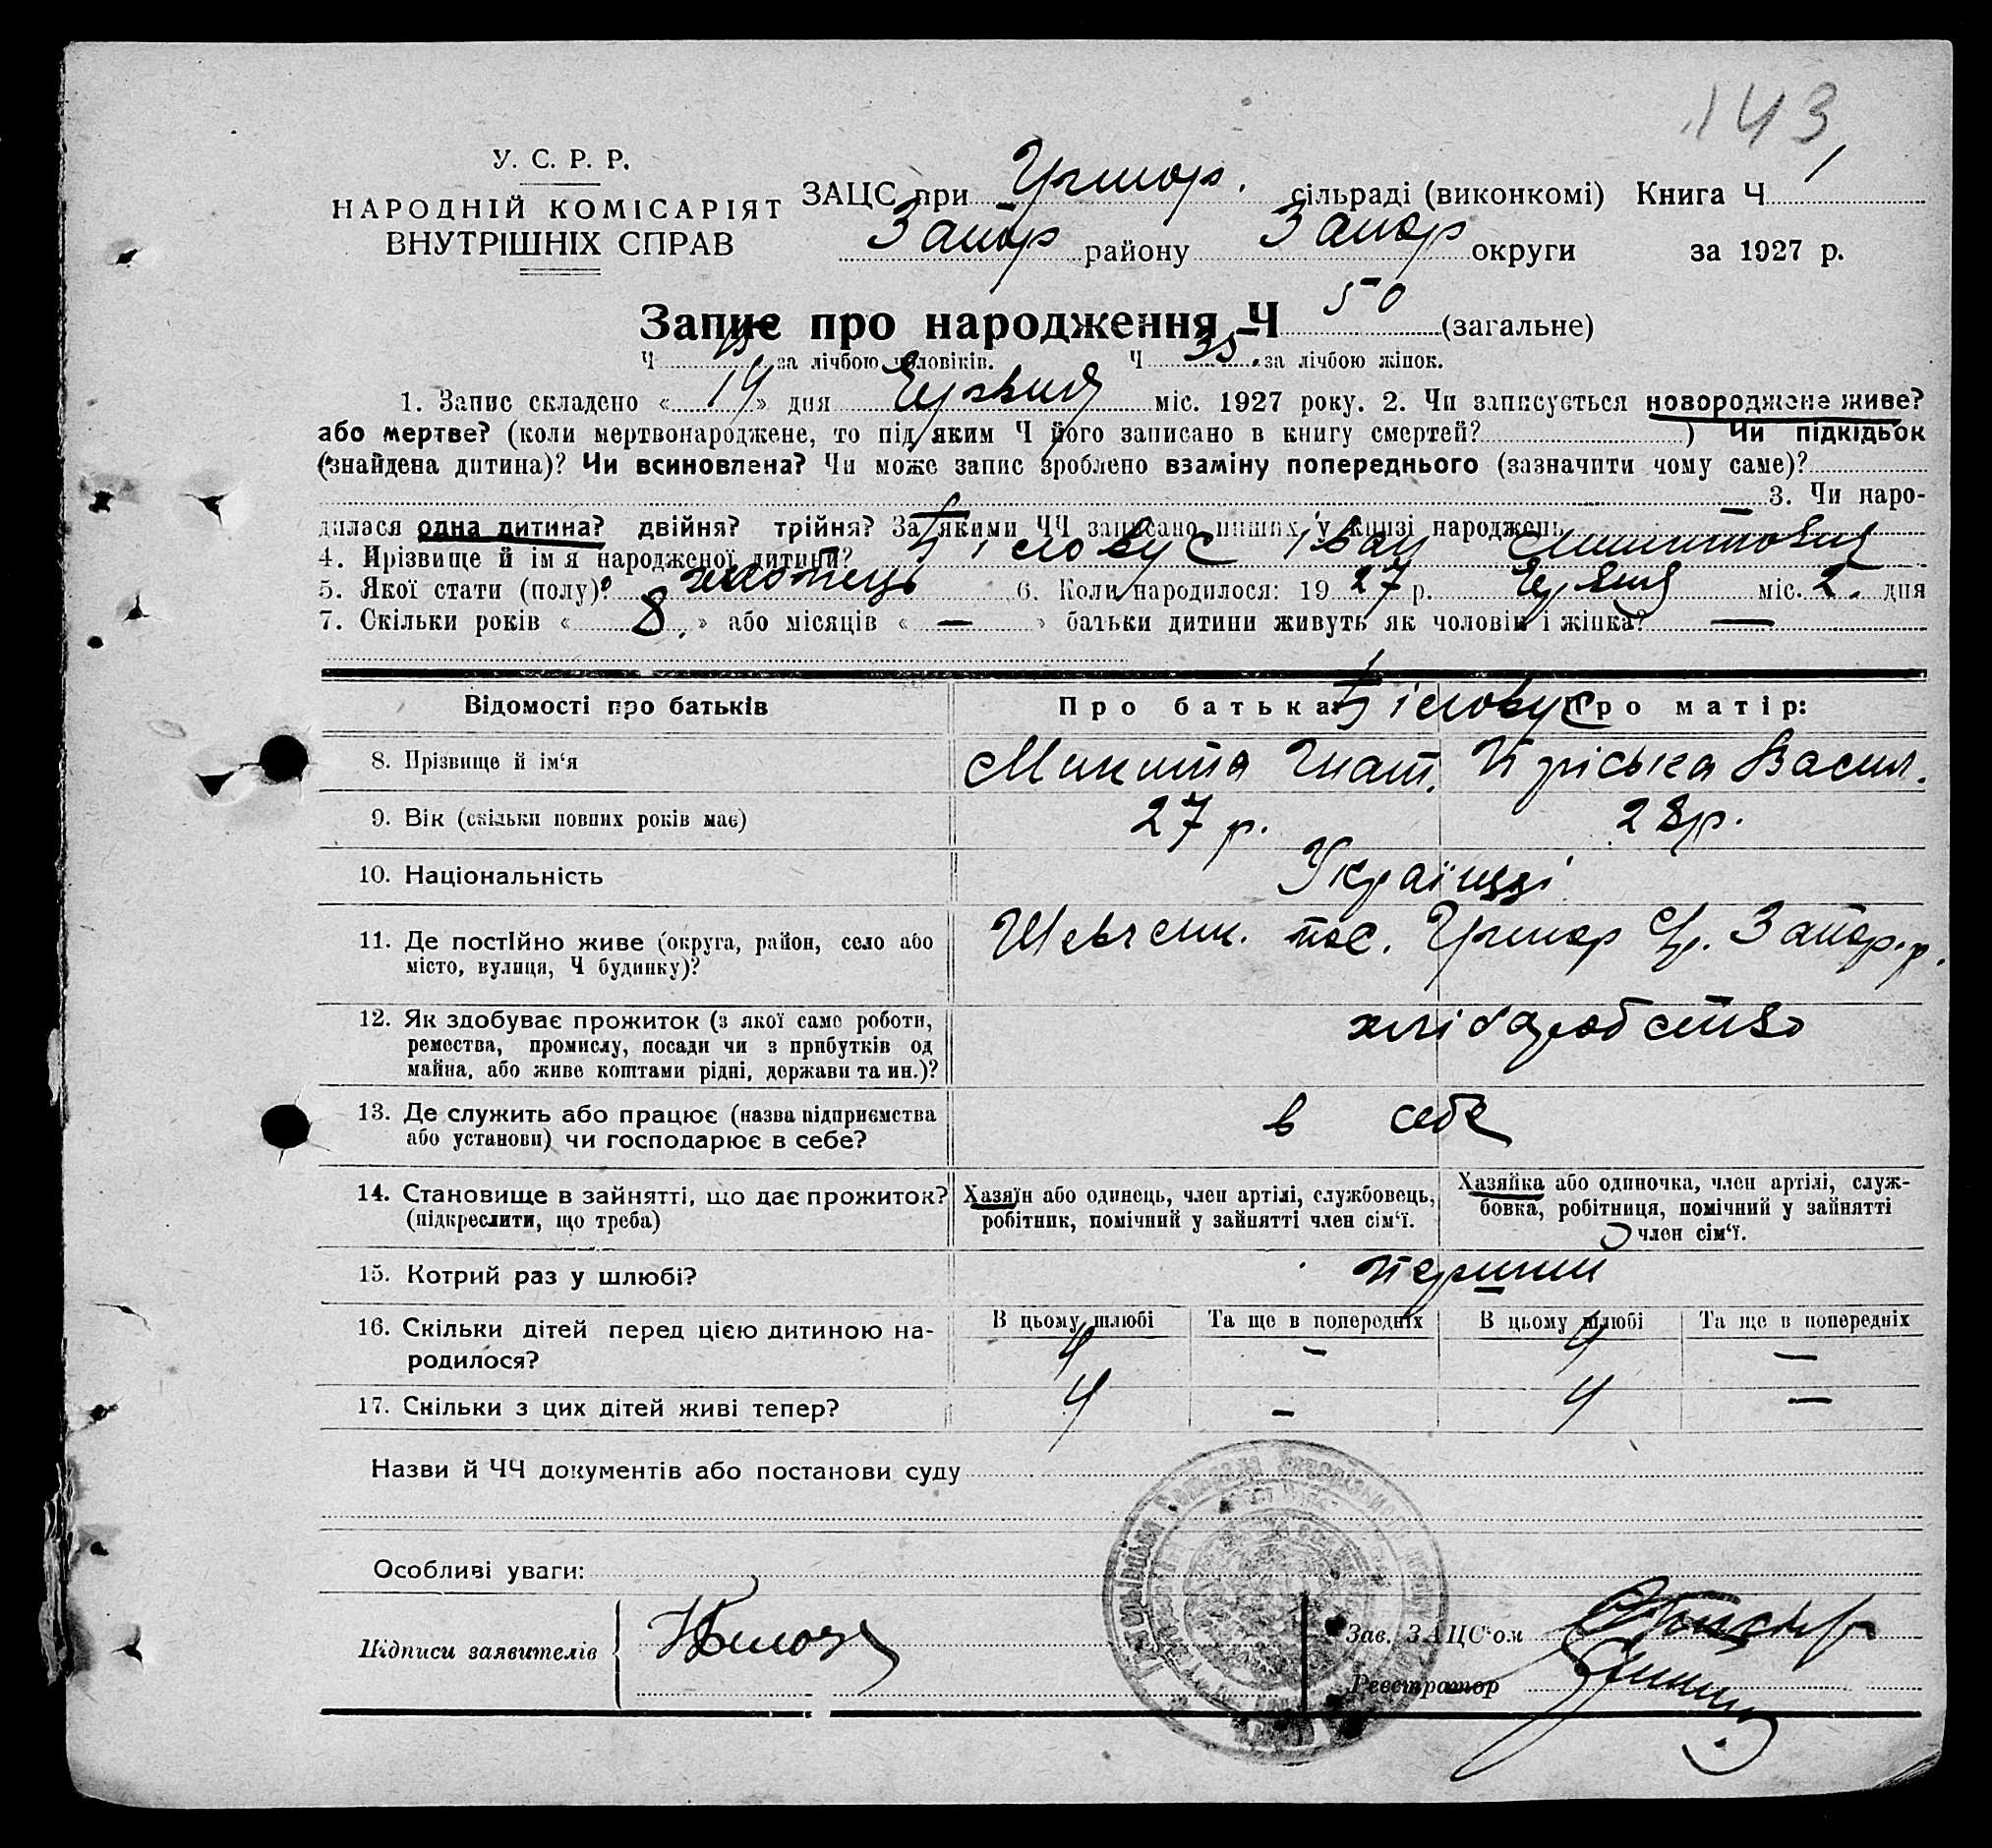 143
У. С. Р. Р.
НАРОДНІЙ КОМІСАРІЯТ
ВНУТРІШНІХ СПРАВ
ЗАЦС при сільраді (виконкомі) Книга Ч 1
Запор району Запор округи за 1927 р.
Запис про народження Ч 50 (загальне)
Ч за лічбою чоловіків. Ч 35 за лічбою жінок.
1. Запис складено « 14 » дня Червня міс. 1927 року. 2. Чи записується новороджене живе?
або мертве? (коли мертвонароджене, то під яким Ч його записано в книгу смертей? ) Чи підкідьок
(знайдена дитина)? Чи всиновлена? Чи може запис зроблено взаміну попереднього (зазначити чому саме)?
— 3. Чи наро-
дилася одна дитина? двійня? трійня? За якими ЧЧ записано инших у книзі народжень
4. Прізвище й ім'я народженої дитини? Біловус Іван Микитович
5. Якої стати (полу)? хлопець 6. Коли народилося: 19 27 р. Червня міс. 2. дня
7. Скільки років « 8. » або місяців « — » батьки дитини живуть як чоловік і жінка? —
Відомості про батьків Про батька: Про матір:
Біловус
8. Прізвище й ім'я Микита Гнат. Пріська Васил.
9. Вік (скільки повних років має) 27 р. 28 р.
10. Національність Українці
11. Де постійно живе (округа, район, село або Шевченк. пос. Запор. р.
місто, вулиця, Ч будинку)?
12. Як здобуває прожиток (з якої саме роботи, хліборобство
ремества, промислу, посади чи з прибутків од
майна, або живе коштами рідні, держави та ин.)?
13. Де служить або працює (назва підприємства в себе
або установи) чи господарює в себе?
14. Становище в зайнятті, що дає прожиток? Хазяїн або одинець, член артілі, службовець, Хазяйка або одиночка, член артілі, служ-
(підкреслити, що треба) робітник, помічний у зайнятті член сім'ї. бовка, робітниця, помічний у зайнятті
член сім'ї.
15. Котрий раз у шлюбі? перший
16. Скільки дітей перед цією дитиною на- В цьому шлюбі Та ще в попередніх В цьому шлюбі Та ще в попередніх
родилося? 4 — 4 —
17. Скільки з цих дітей живі тепер? 4 — 4 —
Назви й ЧЧ документів або постанови суду
Особливі уваги:
Підписи заявителів Зав. ЗАЦС'ом
Реєстратор